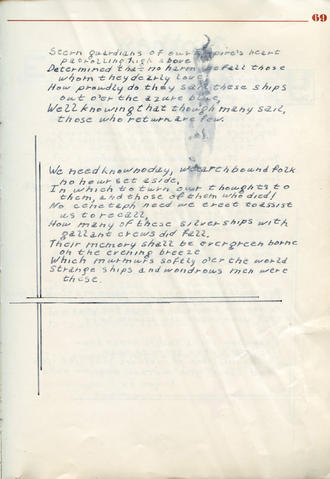 69
Stern guardians of our Empire's heart
patrolling high above
Determined that no harm befall those
whom they dearly love,
How proudly do they sail these ships
out o'er the azure blue,
Well knowing that though many sail,
those who return are few.
We need know no day, we earthbound folk
no hour set aside,
In which to turn our thoughts to
them, and those of them who died!
No cenotaph need we erect to assist
us to recall,
How many of these silver ships with
gallant crews did fall.
Their memory shall be evergreen borne
on the evening breeze
Which murmurs softly o'er the world
Strange ships and wondrous men were
these.